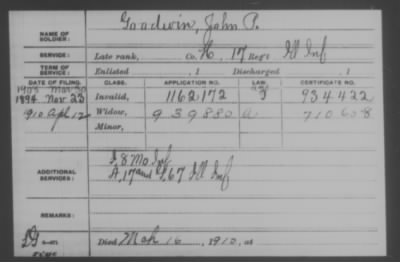 NAME OF SOLDIER: Goodwin, John P.
SERVICE: Late rank, Co. H, 17 Reg't Ill Inf
TERM OF SERVICE: Enlisted , 1 Discharged , 1
DATE OF FILING. CLASS. APPLICATION NO. LAW. CERTIFICATE NO.
1894 Nov 23 Invalid, 1162172 934422
1910 Apl 12 Widow, 939880 a 710608
Minor,
ADDITIONAL SERVICES: I 8 Mo Inf
A 17 and I 67 Ill Inf
REMARKS:
Died Mch 16, 1910, at